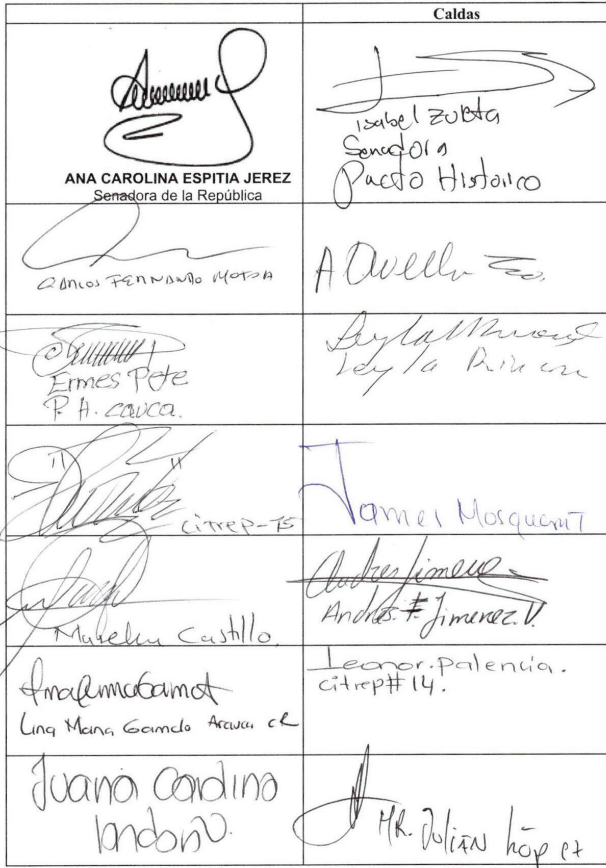 Caldas
ANA CAROLINA ESPITIA JEREZ
Senadora de la República
Isabel Zuleta
Senadora
Pacto Historico
CARLOS FERNANDO MOTOA
A Avella
Ermes Pete
P. H. cauca.
Leyla Rincon
citrep-15
James Mosquera T
Castillo
Andres F Jimenez. V.
Lina Maria Garrido Arauca CR
Leonor. Palencia.
citrep# 14.
Juana Carolina
londoño
HR. Julián López